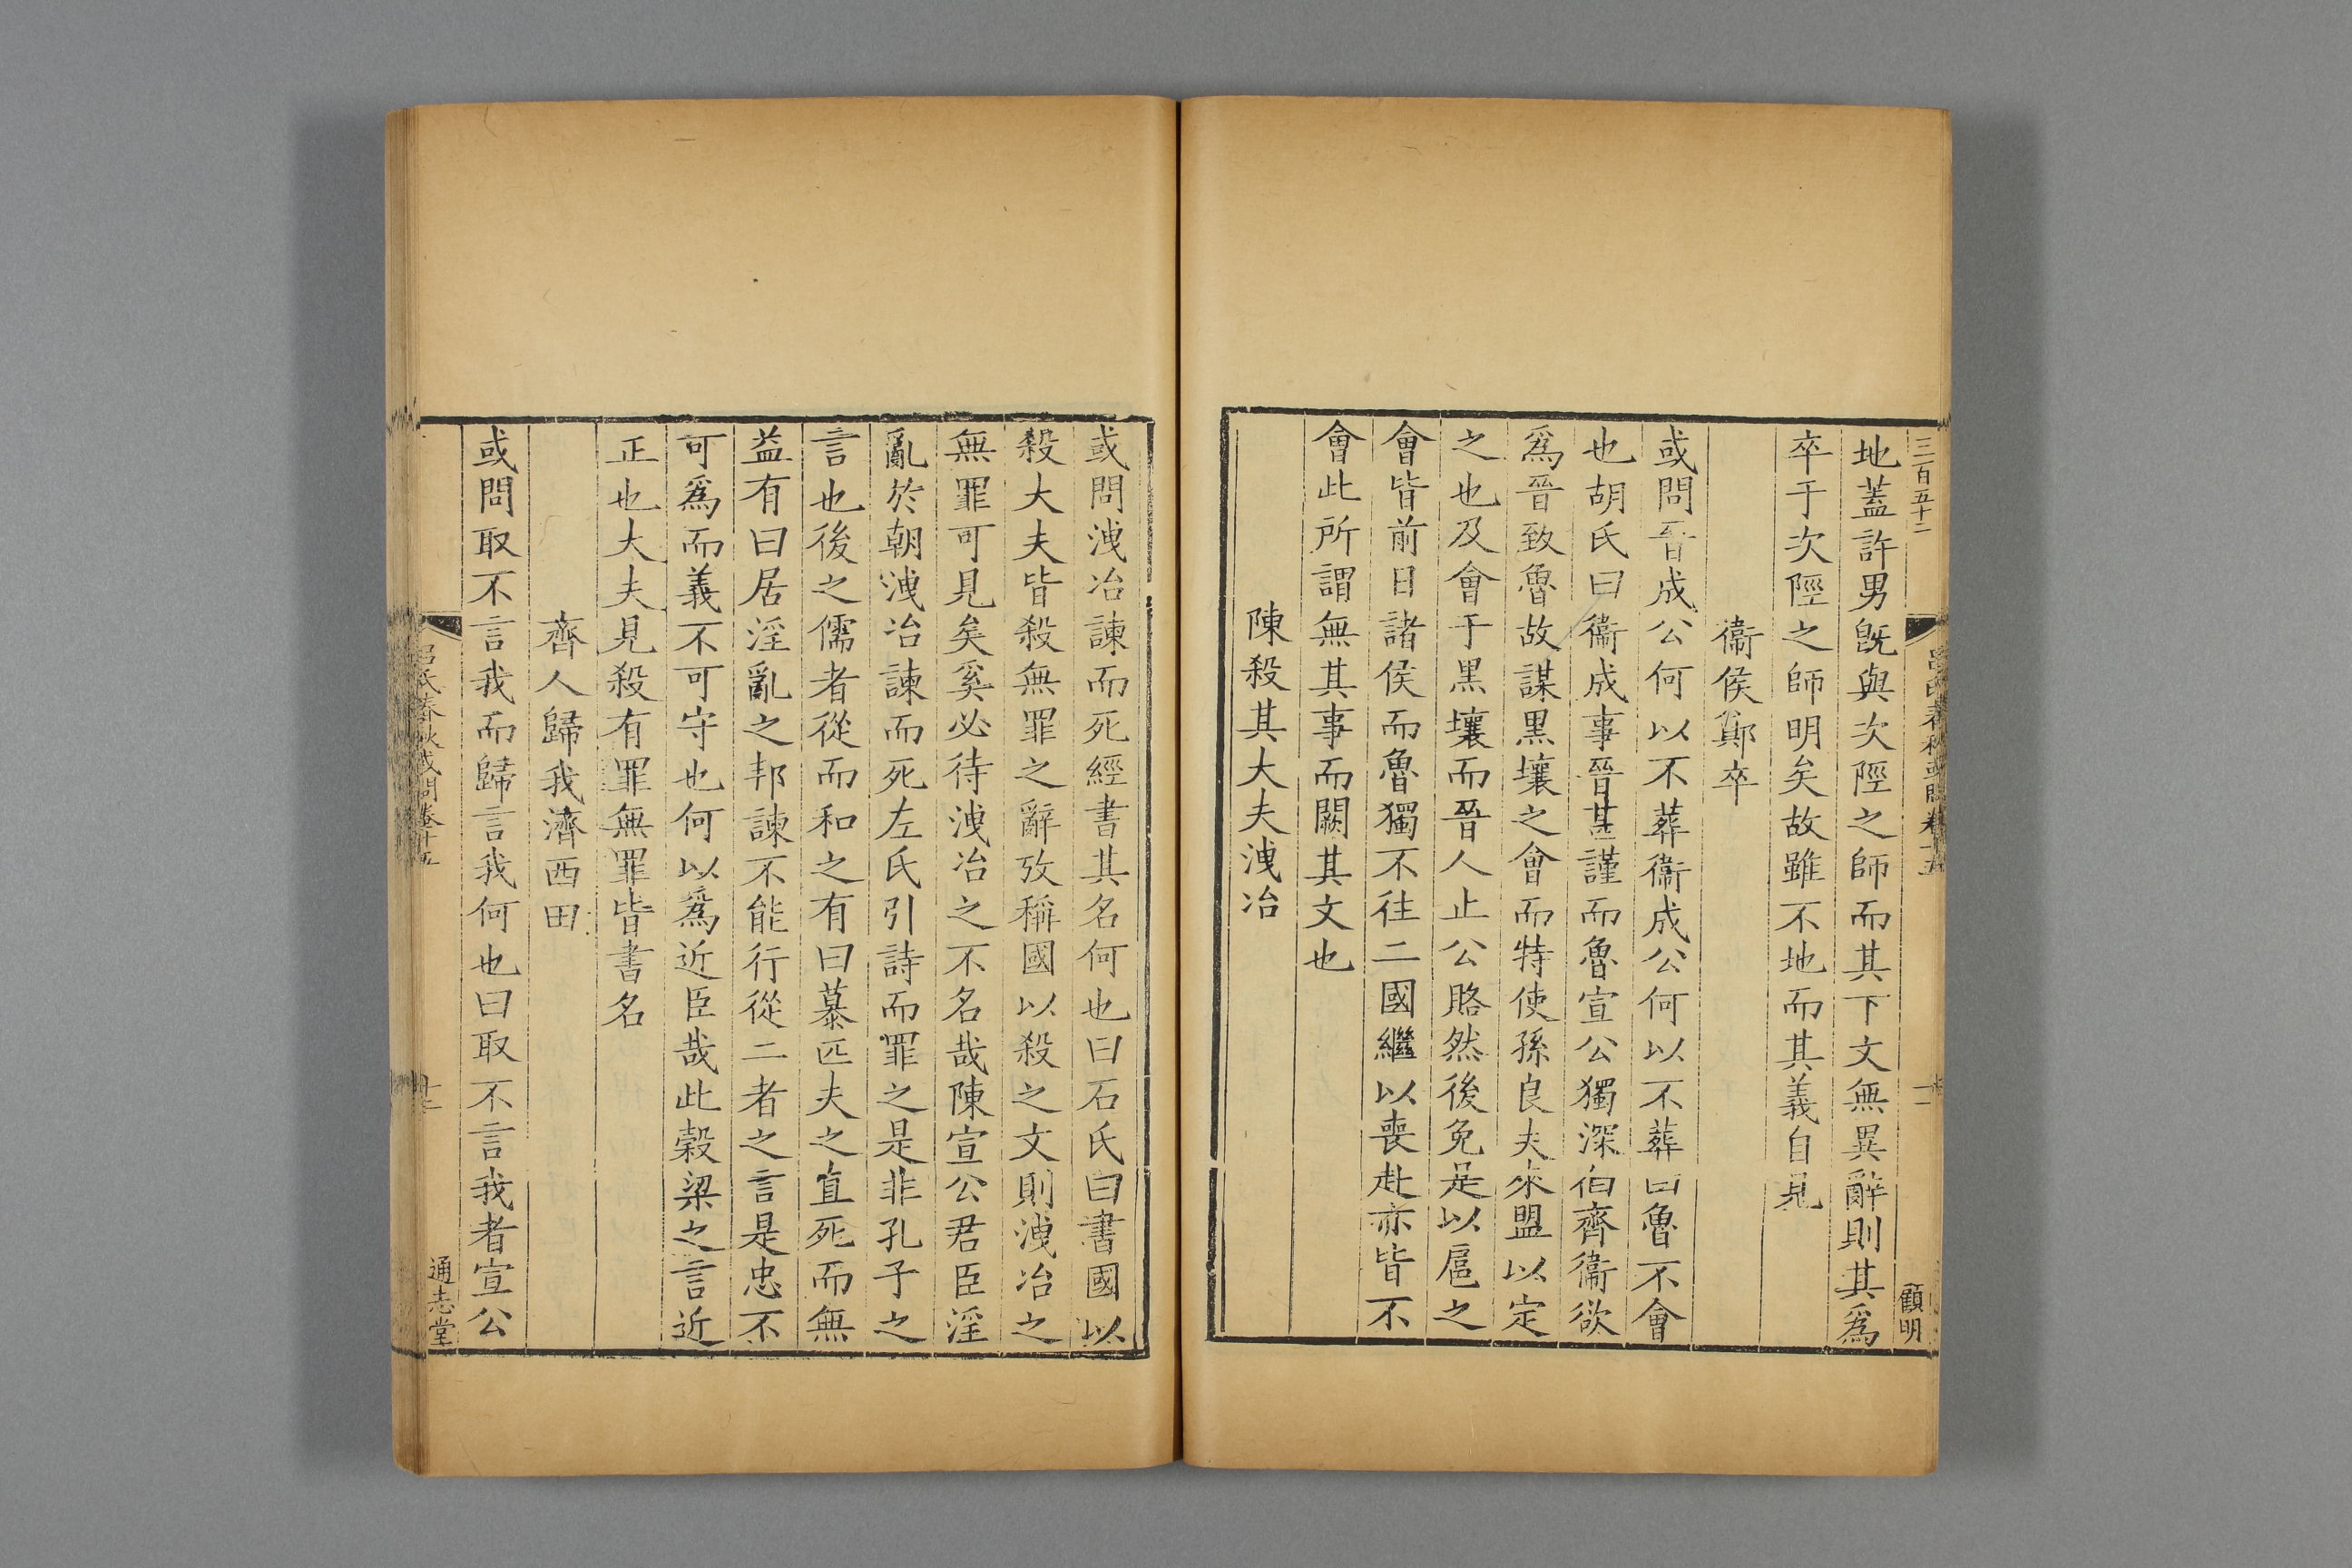 三百五十二
顧明
地蓋許男旣與次陘之師而其下文無異辭則其爲
卒于次陘之師明矣故雖不地而其義自見
衞侯鄭卒
或問晉成公何以不葬衞成公何以不葬曰魯不會
也胡氏曰衞成事晉甚謹而魯宣公獨深向齊衞欲
爲晉致魯故謀黑壤之會而特使孫良夫來盟以定
之也及會于黑壤而晉人止公賂然後免是以扈之
會皆前日諸侯而魯獨不往二國繼以喪赴亦皆不
會此所謂無其事而闕其文也
陳殺其大夫洩冶
或問洩冶諫而死經書其名何也曰石氏曰書國以
殺大夫皆殺無罪之辭攷稱國以殺之文則洩冶之
無罪可見矣奚必待洩冶之不名哉陳宣公君臣淫
亂於朝洩冶諫而死左氏引詩而罪之是非孔子之
言也後之儒者從而和之有曰慕匹夫之直死而無
益有曰居淫亂之邦諫不能行從二者之言是忠不
可爲而義不可守也何以爲近臣哉此穀梁之言近
正也大夫見殺有罪無罪皆書名
齊人歸我濟西田
或問取不言我而歸言我何也曰取不言我者宣公
呂氏春秋或問卷十五
通志堂